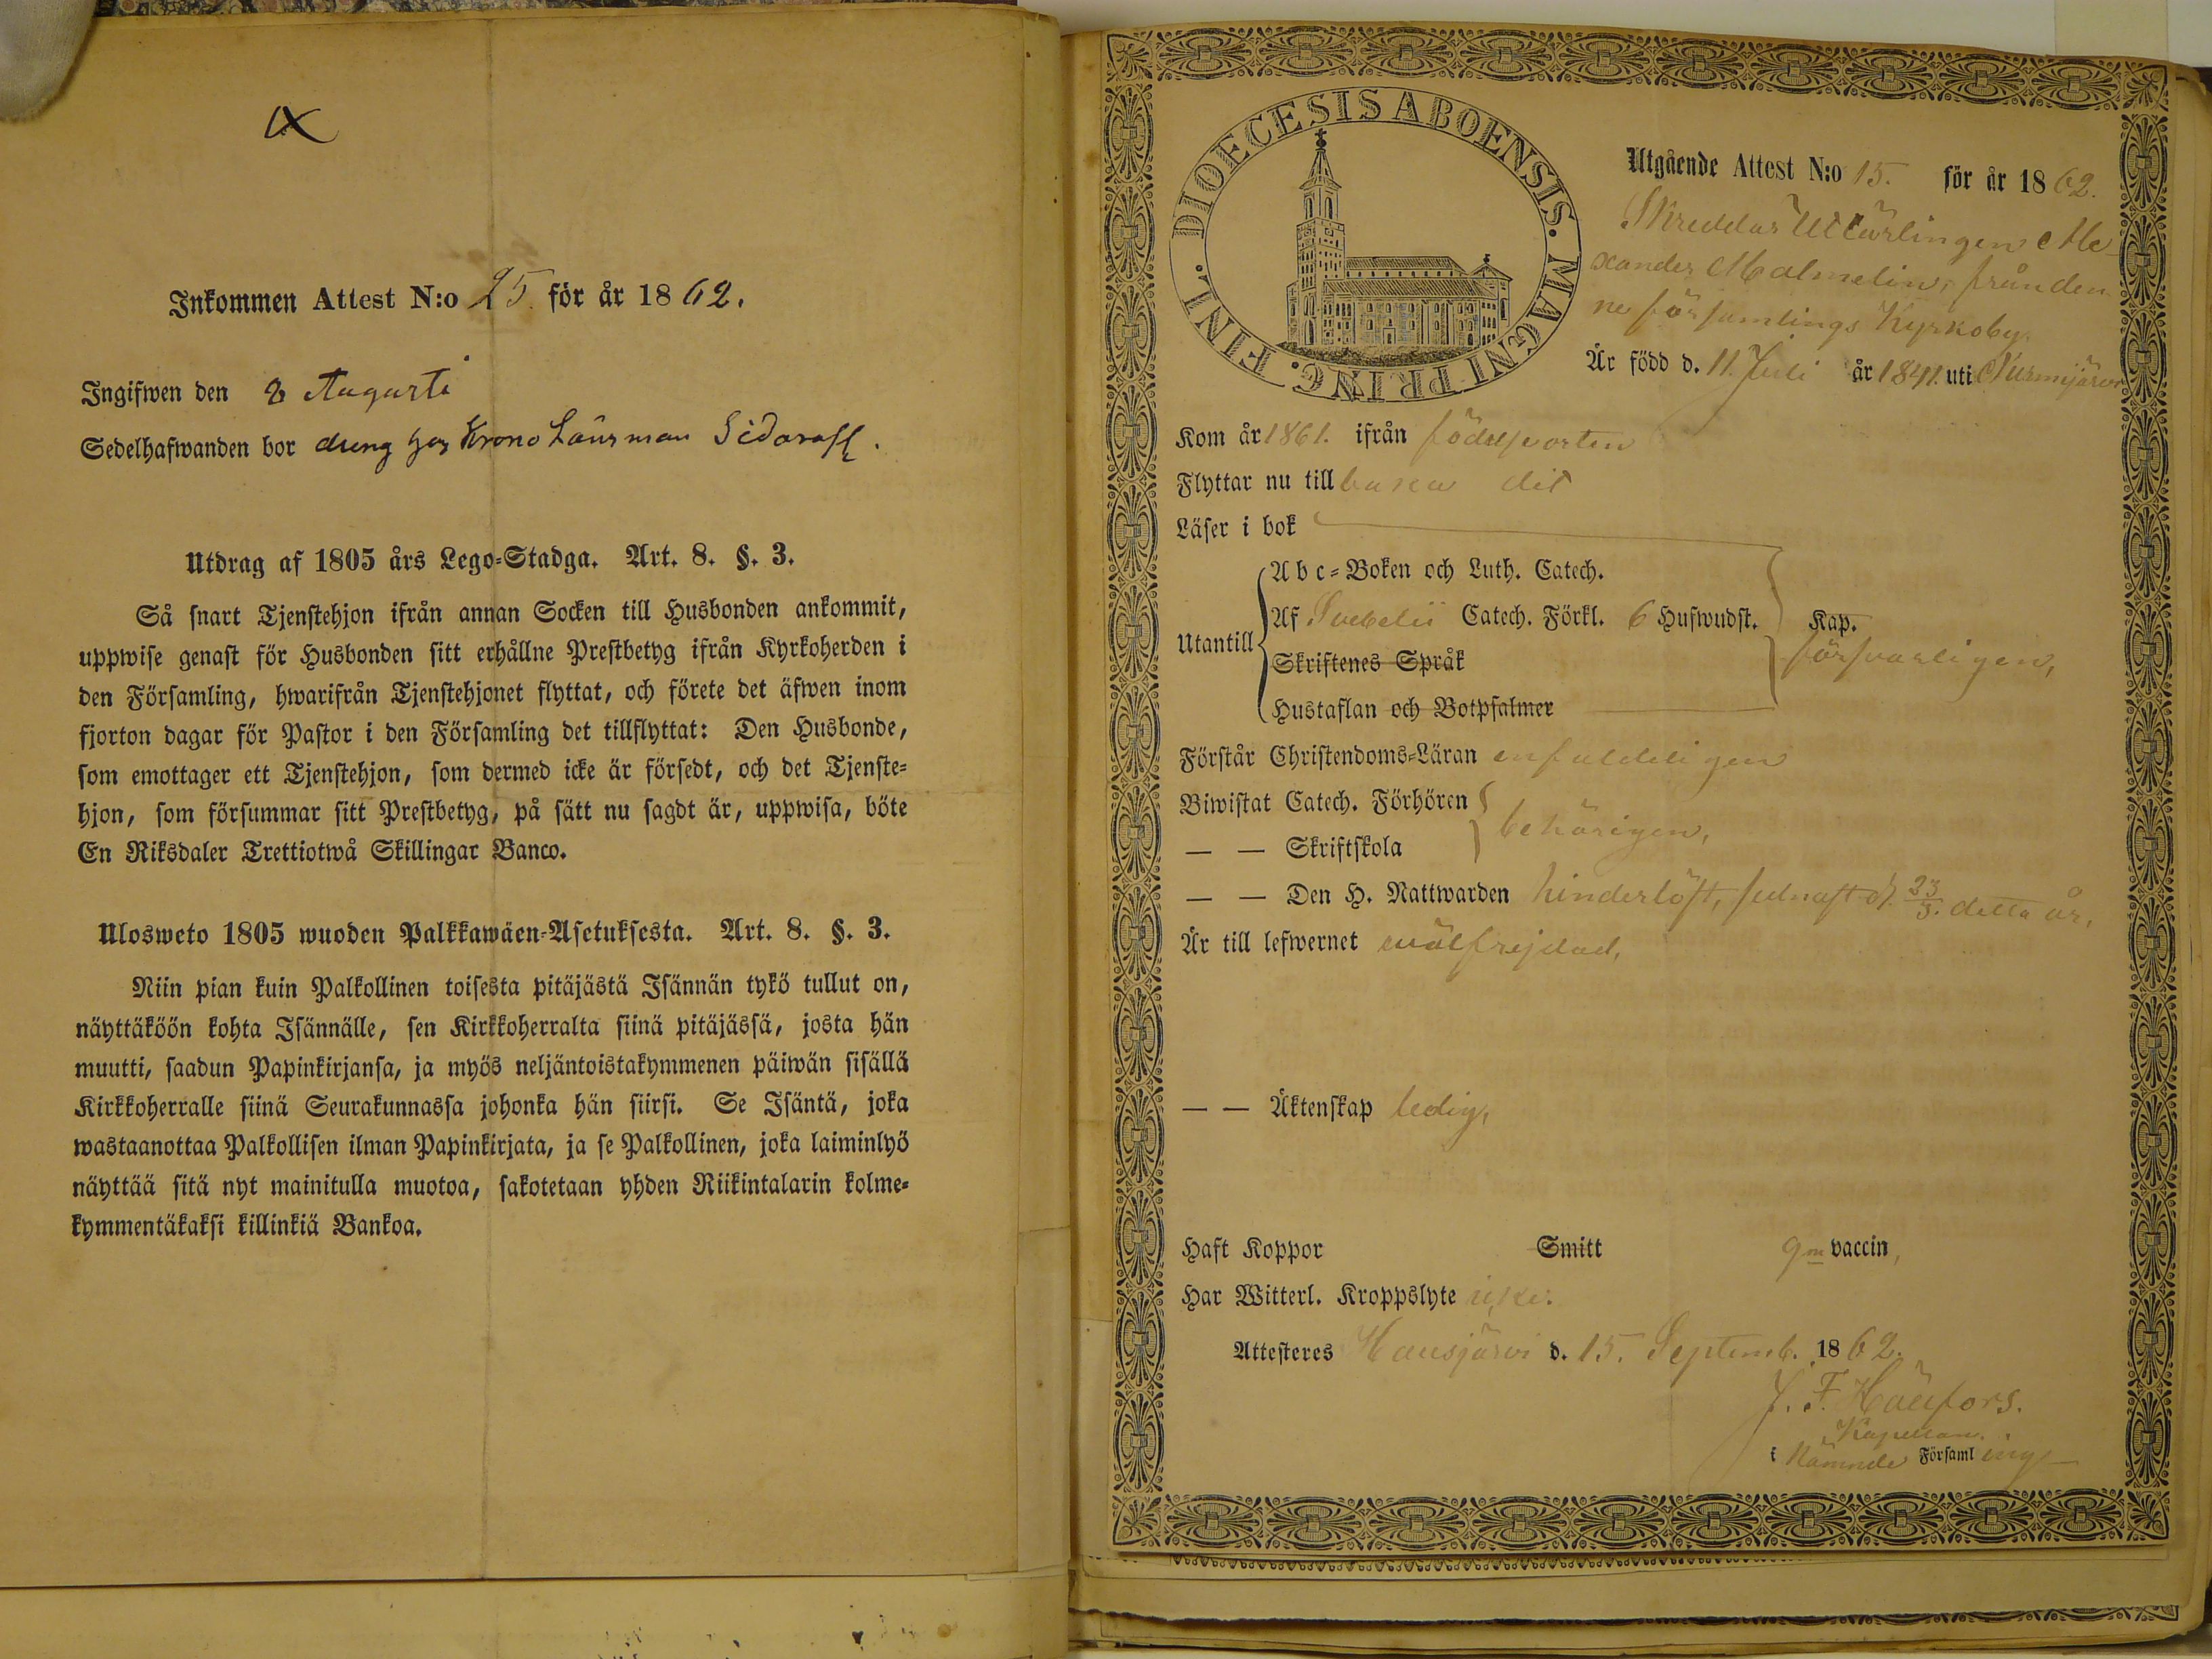 Inkommen Attest N:o 25. för år 1862.
Ingifwen den 8 Augusti
Sedelhafwanden bor dreng hos Krono Länsman Sidoroff.
Utdrag af 1805 års Lego-Stadga. Art. 8. §. 3.
Så snart Tjenstehjon ifrån annan Socken till Husbonden ankommit,
uppwise genast för Husbonden sitt erhållne Prestbetyg ifrån Kyrkoherden i
den Församling, hwarifrån Tjenstehjonet flyttat, och förete det äfwen inom
fjorton dagar för Pastor i den Församling det tillflyttat: Den Husbonde,
som emottager ett Tjenstehjon, som dermed icke är försedt, och det Tjenste-
hjon, som försummar sitt Prestbetyg, på sätt nu sagdt är, uppwisa, böte
En Riksdaler Trettiotwå Skillingar Banco.
Ulosweto 1805 wuoden Palkkawäen-Asetuksesta. Art. 8. §. 3.
Niin pian kuin Palkollinen toisesta pitäjästä Isännän tykö tullut on,
näyttäköön kohta Isännälle, sen Kirkkoherralta siinä pitäjässä, josta hän
muutti, saadun Papinkirjansa, ja myös neljäntoistakymmenen päiwän sisällä
Kirkkoherralle siinä Seurakunnassa johonka hän siirsi. Se Isäntä, joka
wastaanottaa Palkollisen ilman Papinkirjata, ja se Palkollinen, joka laiminlyö
näyttää sitä nyt mainitulla muotoa, sakotetaan yhden Riikintalarin kolme-
kymmentäkaksi killinkiä Bankoa.
DIOECESIS ABOENSIS. MAGNI PRINC. FINL.
Utgående Attest N:o 15. för år 1862.
Skreddar Utlärlingen Ale
xander Malmelin, från den
ne församlings Kyrkoby.
Är född d. 11. Juli år 1841. uti Nurmijärvi
Kom år 1861. ifrån födelseorten
Flyttar nu till baka dit
Läser i bok
Abc-Boken och Luth. Catech.
Utantill Af Svebelii Catech. Förkl. 6 Hufwudst. Kap.
Skriftenes Språk försvarligen,
Hustaflan och Botpsalmer
Förstår Christendoms-Läran enfaldeligen
Biwistat Catech. Förhören
behörigen,
— — Skriftskola
— — Den H. Nattwarden hinderlöst, sednast d. 23/3. detta år,
Är till lefwernet wälfrejdad,
— — Äktenskap ledig,
Haft Koppor Smitt gm vaccin,
Har Witterl. Kroppslyte icke.
Attesteres Hausjärvi d. 15. Septemb. 1862.
J. F. Hänfors.
Kapellan.
i Nämnde Församling